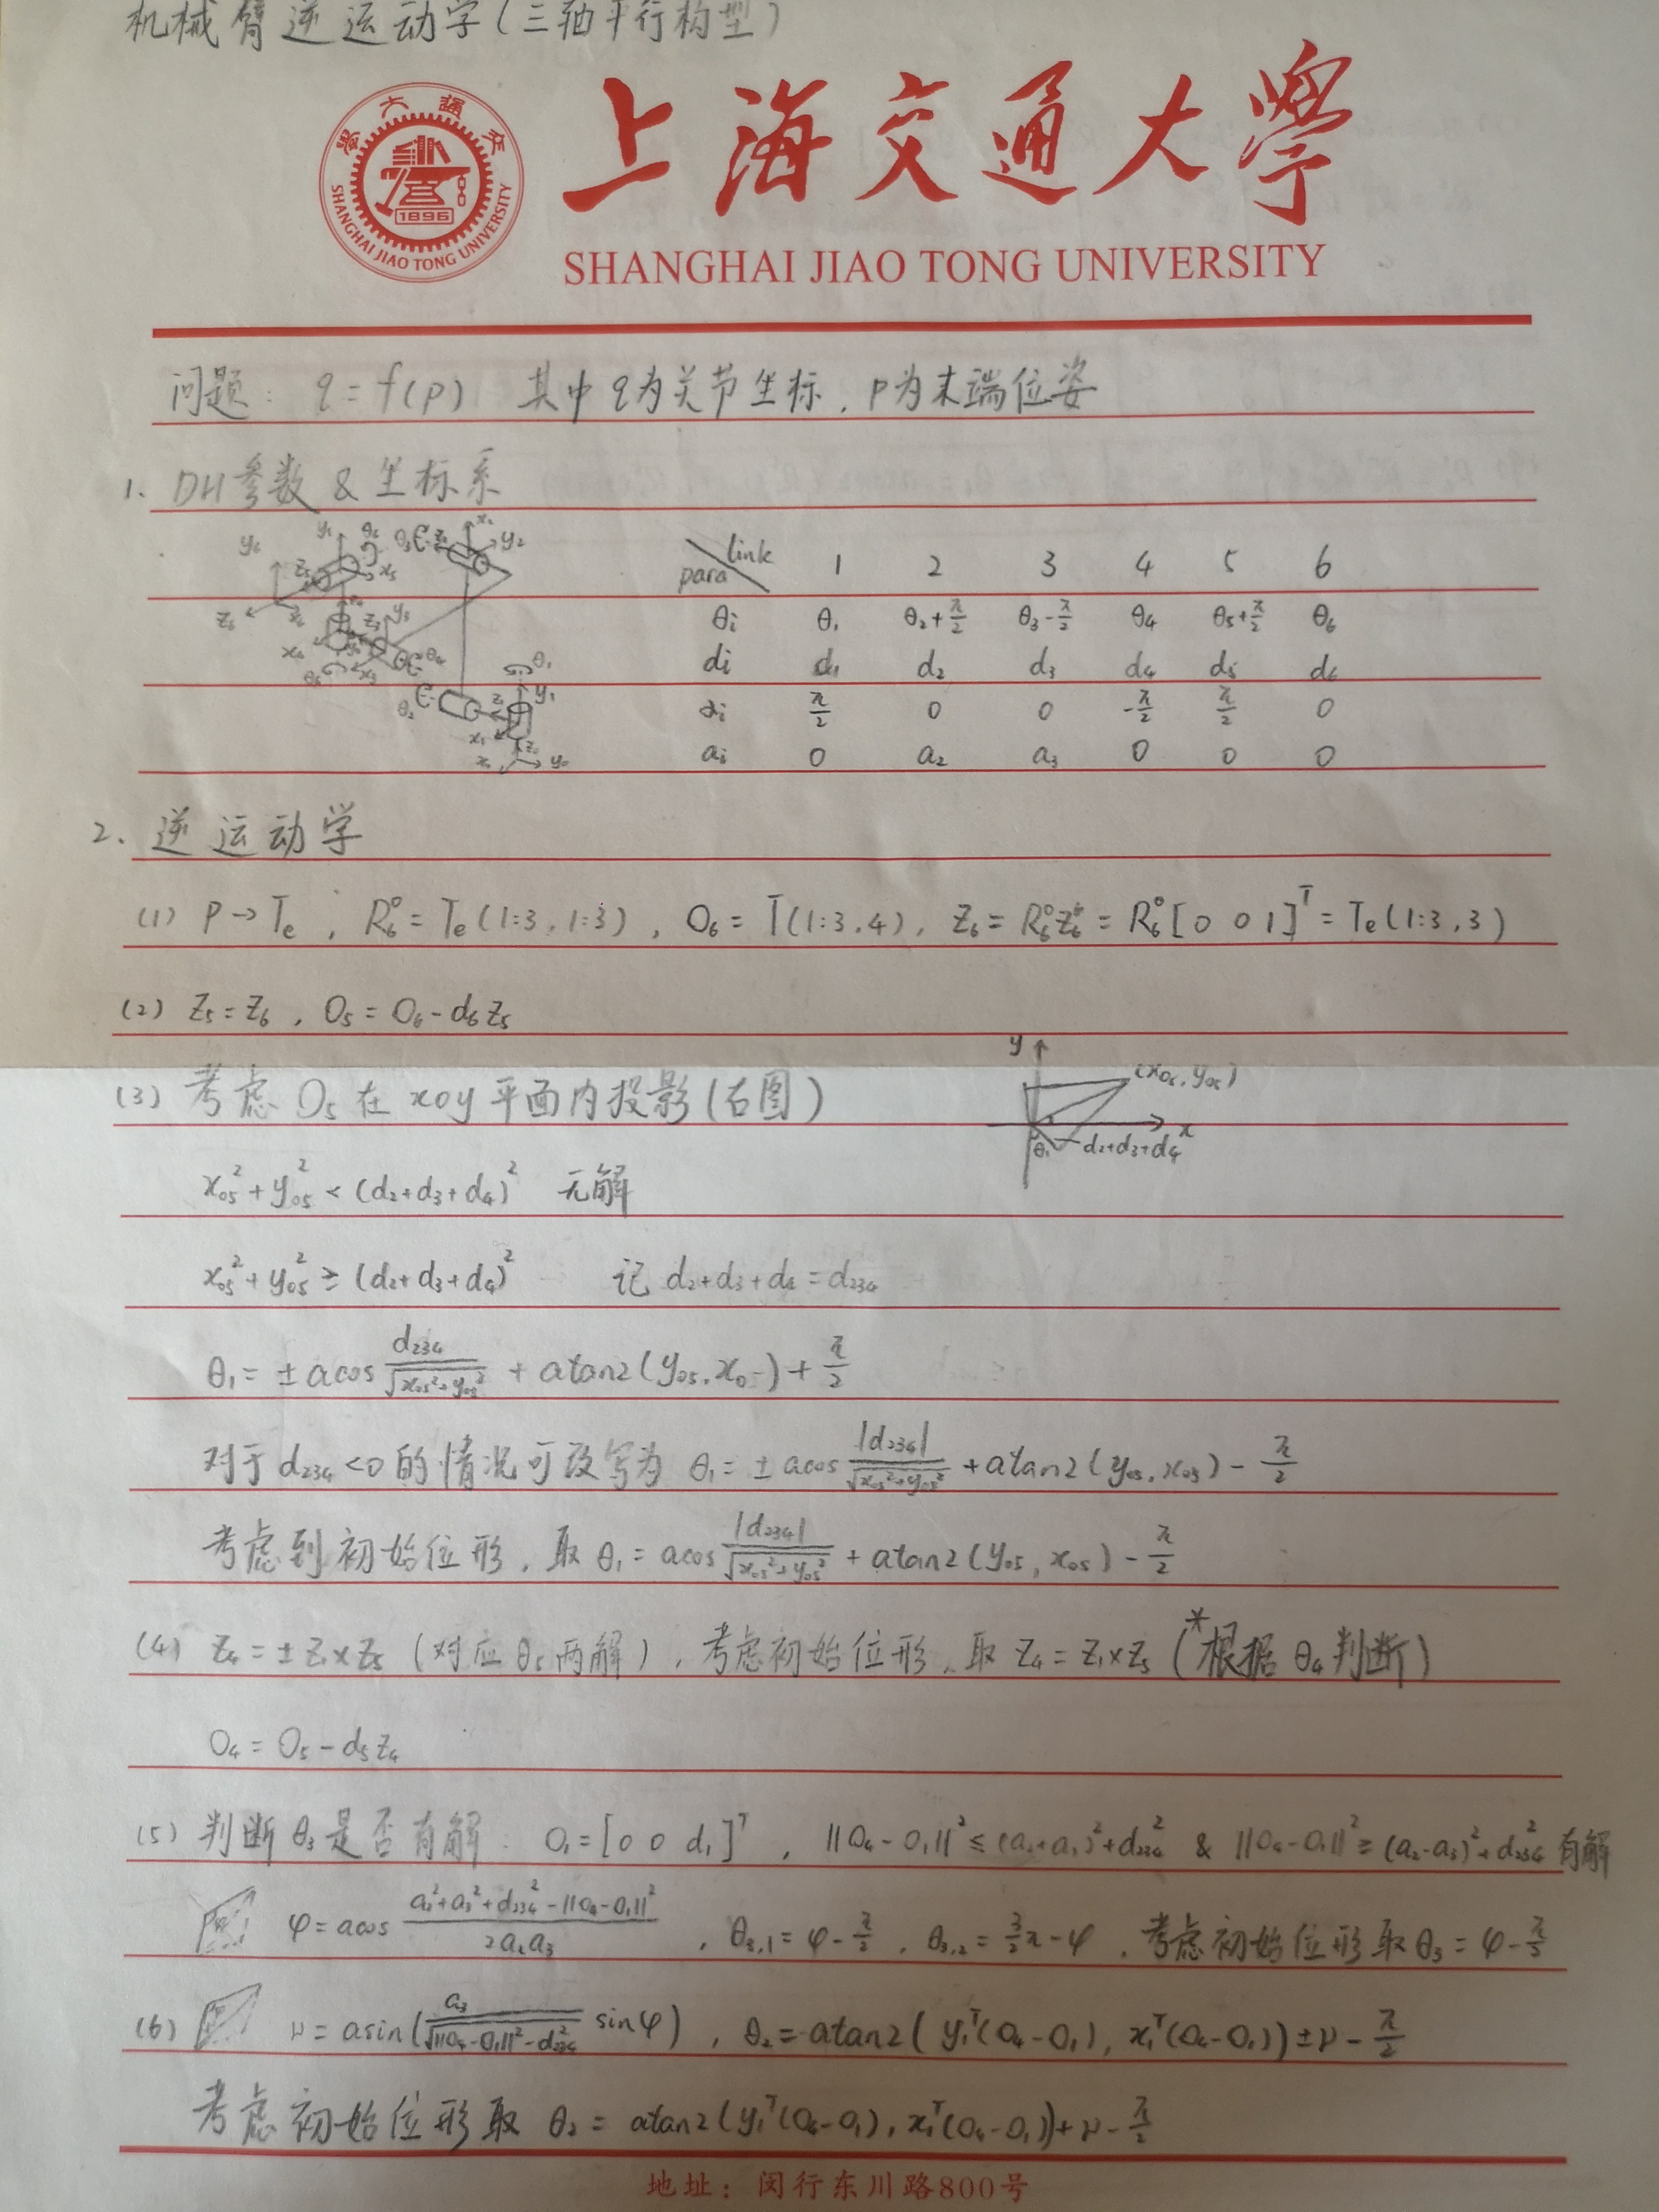 机械臂逆运动学(三轴平行构型)
上海交通大学
1896
SHANGHAI JIAO TONG UNIVERSITY
SHANGHAI JIAO TONG UNIVERSITY
问题: q=f(p) 其中q为关节坐标,p为末端位姿
1. DH参数 & 坐标系
link
para 1 2 3 4 5 6
θi θ₁ θ₂+π/2 θ₃-π/2 θ₄ θ₅+π/2 θ₆
di d₁ d₂ d₃ d₄ d₅ d₆
αi π/2 0 0 -π/2 π/2 0
ai 0 a₂ a₃ 0 0 0
2. 逆运动学
(1) P→Te, R₆⁰=Te(1:3,1:3), O₆=T(1:3,4), Z₆=R₆⁰Z₆⁶=R₆⁰[0 0 1]ᵀ=Te(1:3,3)
(2) Z₅=Z₆, O₅=O₆-d₆Z₅
(3) 考虑O₅在xoy平面内投影(右图)
y
(x₀₅,y₀₅)
x
θ₁ d₂+d₃+d₄
x₀₅²+y₀₅²<(d₂+d₃+d₄)² 无解
x₀₅²+y₀₅²≥(d₂+d₃+d₄)² 记d₂+d₃+d₄=d₂₃₄
θ₁=±acos d₂₃₄/√(x₀₅²+y₀₅²)+atan2(y₀₅,x₀)+π/2
对于d₂₃₄<0的情况可改写为 θ₁=±acos |d₂₃₄|/√(x₀₅²+y₀₅²)+atan2(y₀₅,x₀₅)-π/2
考虑到初始位形,取θ₁=acos |d₂₃₄|/√(x₀₅²+y₀₅²)+atan2(y₀₅,x₀₅)-π/2
(4) Z₄=±Z₁×Z₅(对应θ₅两解),考虑初始位形,取Z₄=Z₁×Z₅(*根据θ₄判断)
O₄=O₅-d₅Z₄
(5) 判断θ₃是否有解: O₁=[0 0 d₁]ᵀ, ||O₄-O₁||²≤(a₂+a₃)²+d₂₃₄² & ||O₄-O₁||²≥(a₂-a₃)²+d₂₃₄² 有解
φ=acos (a₂²+a₃²+d₂₃₄²-||O₄-O₁||²)/2a₂a₃, θ₃,₁=φ-π/2, θ₃,₂=3/2π-φ,考虑初始位形取θ₃=φ-π/2
(6) μ=asin(a₃/√(||O₄-O₁||²-d₂₃₄²) sinφ), θ₂=atan2(y₁ᵀ(O₄-O₁), x₁ᵀ(O₄-O₁))±μ-π/2
考虑初始位形取 θ₂=atan2(y₁ᵀ(O₄-O₁), x₁ᵀ(O₄-O₁))+μ-π/2
地址:闵行东川路800号